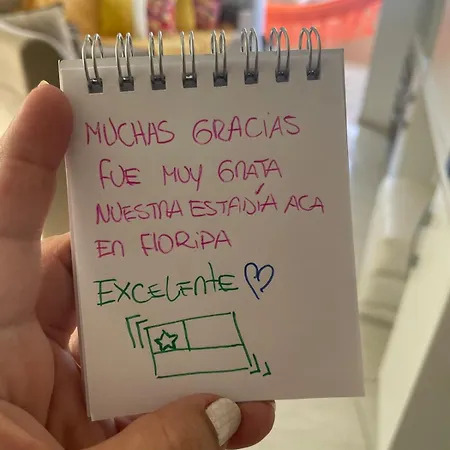 MUCHAS GRACIAS
FUE MUY GRATA
NUESTRA ESTADÍA ACA
EN FLORIPA
EXCELENTE